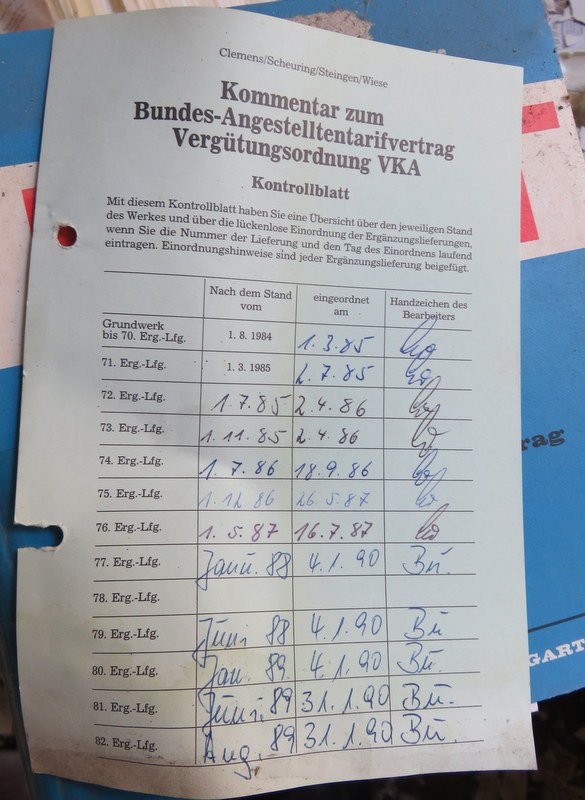 Clemens/Scheuring/Steingen/Wiese
Kommentar zum
Bundes-Angestelltentarifvertrag
Vergütungsordnung VKA
Kontrollblatt
Mit diesem Kontrollblatt haben Sie eine Übersicht über den jeweiligen Stand
des Werkes und über die lückenlose Einordnung der Ergänzungslieferungen,
wenn Sie die Nummer der Lieferung und den Tag des Einordnens laufend
eintragen. Einordnungshinweise sind jeder Ergänzungslieferung beigefügt.
Nach dem Stand vom
eingeordnet am
Handzeichen des Bearbeiters
Grundwerk
bis 70. Erg.-Lfg. 1. 8. 1984 1.3.85
71. Erg.-Lfg. 1. 3. 1985 2.7.85
72. Erg.-Lfg. 1.7.85 2.4.86
73. Erg.-Lfg. 1.11.85 2.4.86
74. Erg.-Lfg. 1.7.86 18.9.86
75. Erg.-Lfg. 1.12.86 26.5.87
76. Erg.-Lfg. 1.5.87 16.7.87
77. Erg.-Lfg. Janu. 88 4.1.90 Bü.
78. Erg.-Lfg.
79. Erg.-Lfg. Juni 88 4.1.90 Bü
80. Erg.-Lfg. Jan. 89 4.1.90 Bü.
81. Erg.-Lfg. Juni. 89 31.1.90 Bü.
82. Erg.-Lfg. Aug. 89 31.1.90 Bü.
rag
GART